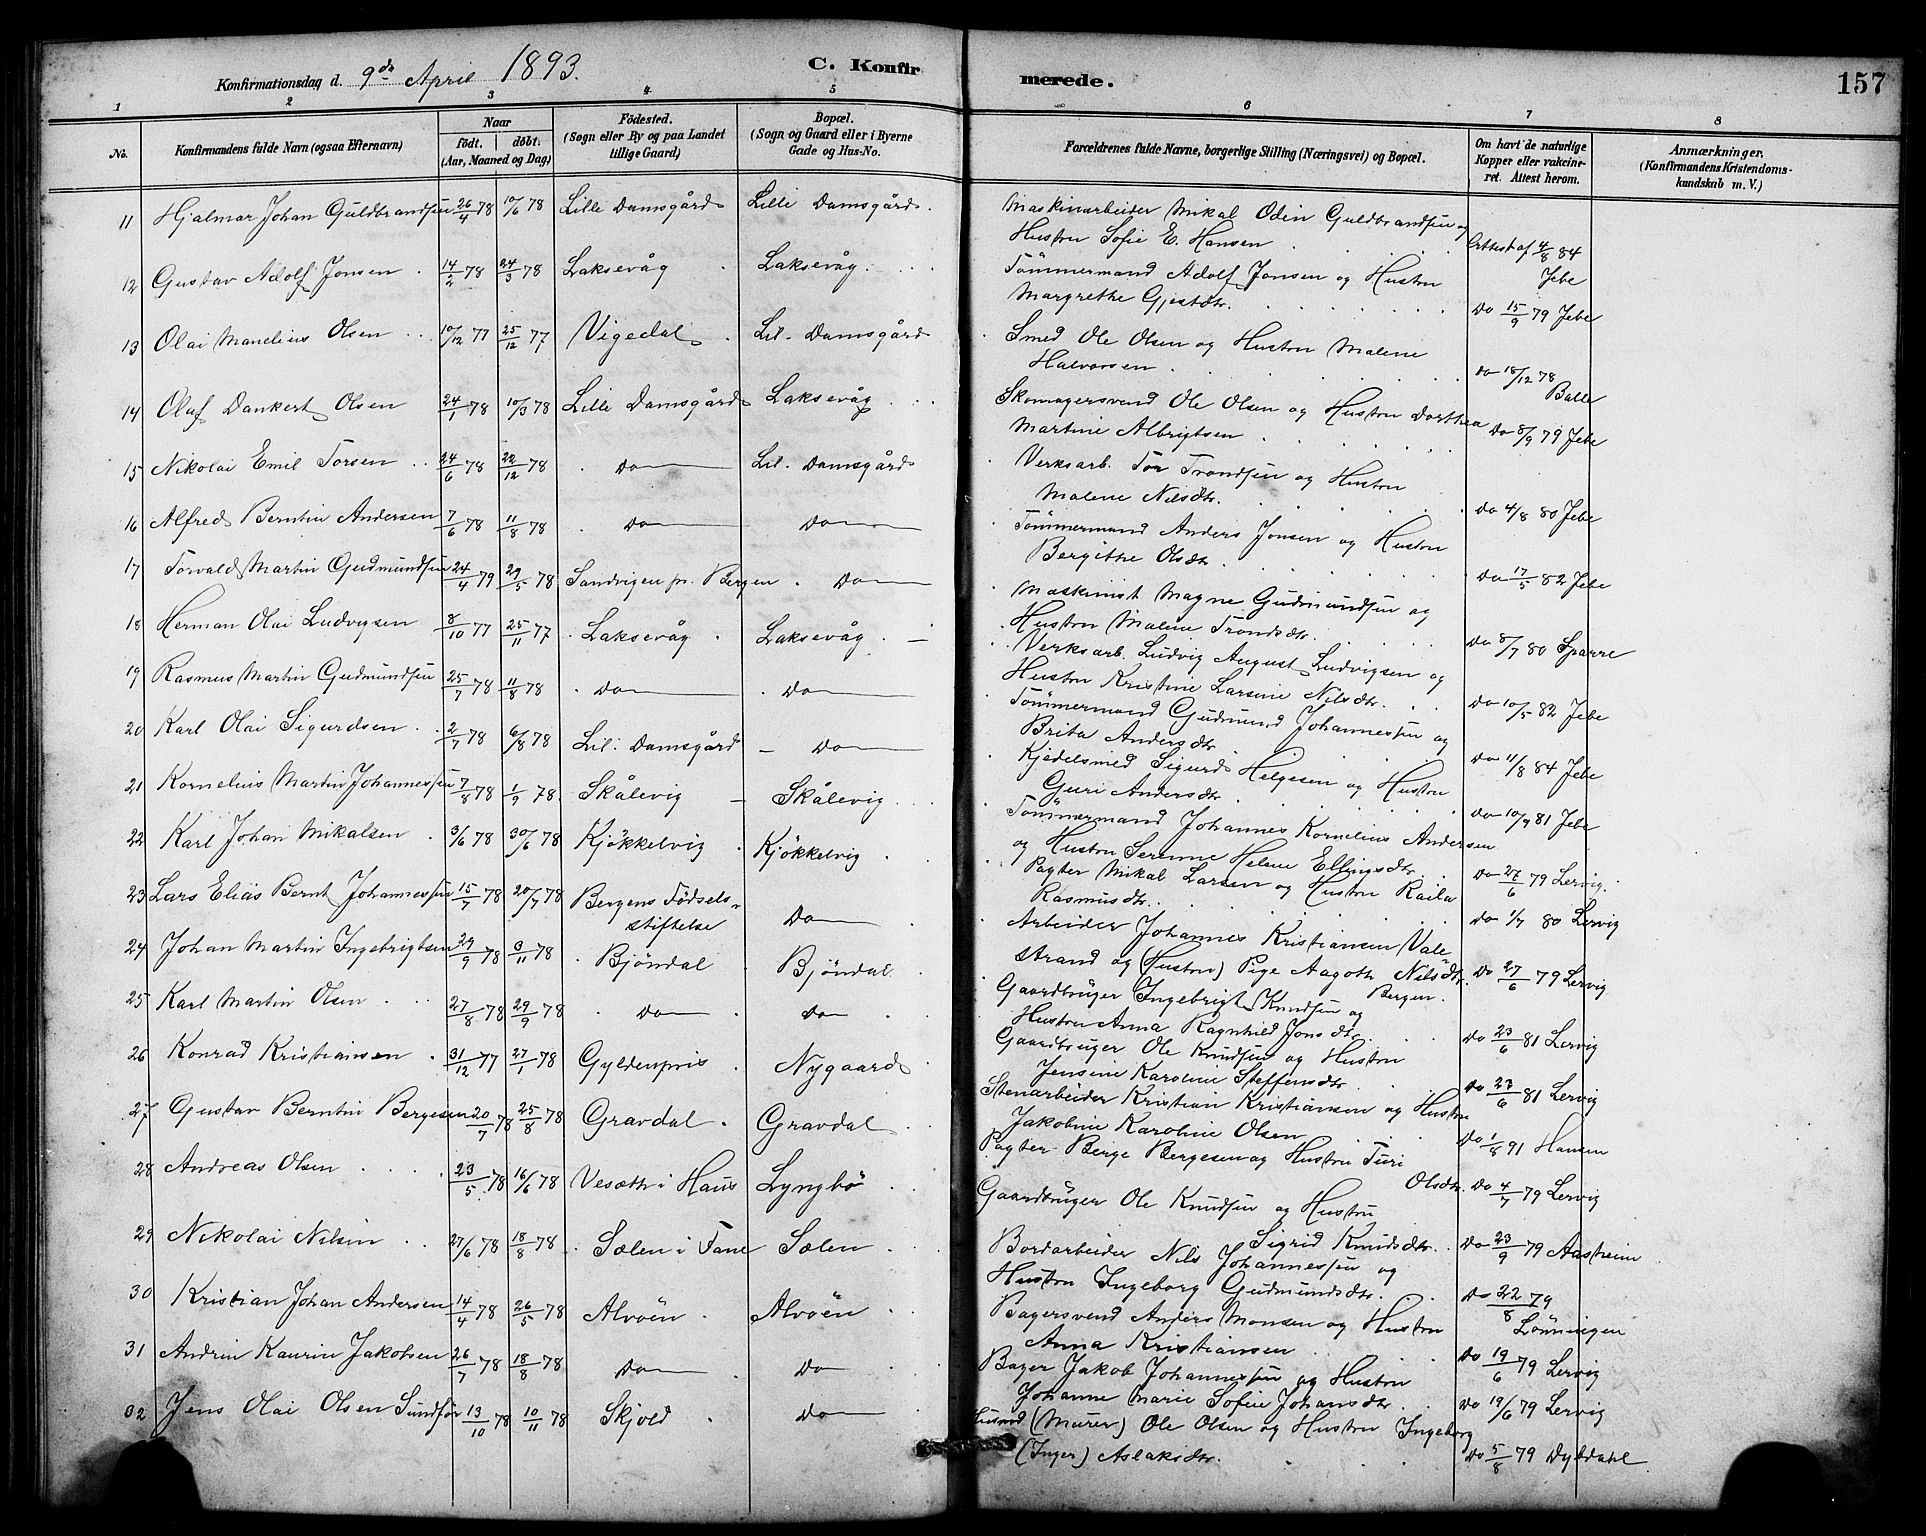 Konfirmationsdag d. 9de April 1893.
C. Konfirmerede.
157
1 2 3 4 5 6 7 8
No. Konfirmandens fulde Navn (ogsaa Efternavn) Naar født. døbt. (Aar, Maaned og Dag) Födested. (Sogn eller By og paa Landet tillige Gaard) Bopæl. (Sogn og Gaard eller i Byerne Gade og Hus-No. Forældrenes fulde Navne, borgerlige Stilling (Næringsvei) og Bopæl. Om havt de naturlige Kopper eller vakcineret. Attest herom. Anmærkninger. (Konfirmandens Kristendomskundskab m. V.)
11 Hjalmar Johan Guldbrandsen 26/4 78 10/6 78 Lille Damsgård Lille Damsgård. Maskinarbeider Mikal Odin Guldbrandsen og Hustru Sofie E. Hansen Attest af 4/8 84 Jebe
12 Gustav Adolf Jonsen 14/2 78 24/3 78 Laksevåg Laksevåg Tömmermand Adolf Jonsen og Hustru Margrethe Gjestdtr. Do 15/9 79 Jebe
13 Olai Manelius Olsen 10/12 77 25/12 77 Vigedal Lil. Damsgård Smed Ole Olsen og Hustru Malene Halvorsen Do 18/12 78 Balle
14 Olaf Dankert Olsen 24/1 78 10/3 78 Lille Damsgård Laksevåg Skomagersvend Ole Olsen og Hustru Dorthea Martine Albrigtsen Do 8/9 79 Jebe
15 Nikolai Emil Torsen 24/6 78 22/12 78 Do Lil. Damsgård Verksarb. Tor Trondsen og Hustru Malene Nilsdtr. Do 4/8 80 Jebe
16 Alfred Berntin Andersen 7/6 78 11/8 78 Do Do Tömmermand Anders Jonsen og Hustru Bergithe Olsdtr. Do 17/5 82 Jebe
17 Torvald Martin Gudmundsen 24/4 79 29/5 78 Sandvigen pr. Bergen Do Maskinist Magne Gudmundsen og Hustru Malene Trondsdtr. Do 8/7 80 Sparre
18 Herman Olai Ludvigsen 8/10 77 25/11 77 Laksevåg Laksevåg Verksarb. Ludvig August Ludvigsen og Hustru Kristine Larsine Nilsdtr. Do 10/5 82 Jebe
19 Rasmus Martin Gudmundsen 25/7 78 11/8 78 Do Do Tömmermand Gudmund Johannessen og Brita Andersdtr. Do 11/8 84 Jebe
20 Karl Olai Sigurdsen 2/7 78 6/8 78 Lil. Damsgård Do Kjedelsmed Sigurd Helgesen og Hustru Guri Andersdtr. Do 10/9 81 Jebe
21 Kornelius Martin Johannessen 7/8 78 1/9 78. Skålevig Skålevig Tömmermand Johannes Kornelius Andersen og Hustru Serenne Helene Ellingsdtr. Do 27/6 79 Lervig.
22 Karl Johan Mikalsen 3/6 78 30/6 78 Kjökkelvig Kjökkelvig Pagter Mikal Larsen og Hustru Raila Rasmusdtr. Do 1/7 80 Lervig
23 Lars Elias Bernt Johannessen 15/7 78 20/7 78 Bergens Fødselsstiftelse Do Arbeider Johannes Kristiansen Valestrand og (Hustru) Pige Aagoth Nilsdtr. Bergen. Do 27/6 79 Lervig
24 Johan Martin Ingebrigtsen 29/9 78 3/11 78 Bjöndal Bjöndal. Gaardbruger Ingebrigt Knudsen og Hustru Anna Ragnhild Jonsdtr. Do 23/6 81 Lervig
25 Karl Martin Olsen 27/8 78 29/9 78 Do Do Gaardbruger Ole Knudsen og Hustru Jensine Karoline Steffensdtr. Do 23/6 81 Lervig
26 Konrad Kristiansen 31/12 77 27/1 78 Gyldenpris Nygaard Stenarbeider Kristian Kristiansen og Hustru Jakobine Karoline Olsen Do 1/8 91 Hansen
27 Gustav Berntin Bergesen 20/7 78 25/8 78 Gravdal. Gravdal Pagter Berge Bergesen og Hustru Turi Olsdtr. Do 4/7 79 Lervig
28 Andreas Olsen 23/5 78 16/6 78 Vesæth i Haus Lyngbö Gaardbruger Ole Knudsen og Hustru Sigrid Knudsdtr. Do 23/9 79 Aasheim
29 Nikolai Nilsen 27/6 78 18/8 78 Sælen i Fane Sælen Bordarbeider Nils Johannessen og Hustru Ingeborg Gudmundsdtr. Do 22/8 79 Lönningen
30 Kristian Johan Andersen 14/4 78 26/5 78 Alvöen Alvöen Bagersvend Anders Monsen og Hustru Anna Kristiansen Do 19/6 79 Lervig
31 Andrin Kaurin Jakobsen 26/7 78 18/8 78 Do Do Bager Jakob Johannessen og Hustru Johanne Marie Sofie Johansdtr. Do 19/6 79 Lervig
32 Jens Olai Olsen Sundför 13/10 78 10/11 78 Skjold Do Husmd (Murer) Ole Olsen og Hustru Ingeborg (Inger) Aslaksdtr. Do 5/8 79 Dybdahl